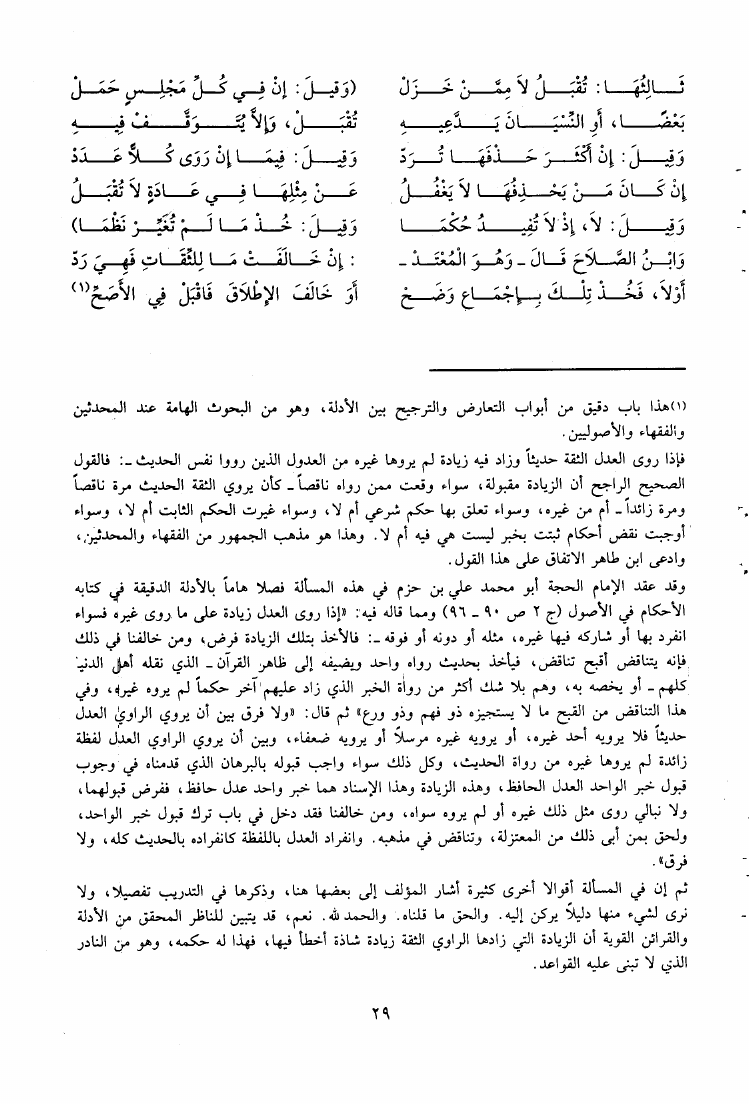 ثَالِثُهَا: تُقْبَلُ لاَ مِمَّنْ خَزَلْ (وَقِيلَ: إِنْ فِي كُلِّ مَجْلِسٍ حَمَلْ
بَعْضًا، أَوِ النِّسْيَانَ يَدَّعِيهِ تُقْبَلْ، وَإِلاَّ يُتَوَقَّفْ فِيهِ
وَقِيلَ: إِنْ أَكْثَرَ حَذْفَهَا تُرَدّ وَقِيلَ: فِيمَا إِنْ رَوَى كُلاًّ عَدَدْ
إِنْ كَانَ مَنْ يَحْذِفُهَا لاَ يَغْفُلُ عَنْ مِثْلِهَا فِي عَادَةٍ لاَ تُقْبَلُ
وَقِيلَ: لاَ، إِذْ لاَ تُفِيدُ حُكْمَا وَقِيلَ: خُذْ مَا لَمْ تُغَيِّرْ نَظْمَا)
وَابْنُ الصَّلاَحِ قَالَ - وَهُوَ الْمُعْتَمَدْ - : إِنْ خَالَفَتْ مَا لِلثِّقَاتِ فَهِيَ رَدّ
أَوْلاَ، فَخُذْ تِلْكَ بِإِجْمَاعٍ وَضَحْ أَوَ خَالَفَ الإِطْلاَقَ فَاقْبَلْ فِي الأَصَحّ(١)
(١)هذا باب دقيق من أبواب التعارض والترجيح بين الأدلة، وهو من البحوث الهامة عند المحدثين
والفقهاء والأصوليين.
فإذا روى العدل الثقة حديثاً وزاد فيه زيادة لم يروها غيره من العدول الذين رووا نفس الحديث -: فالقول
الصحيح الراجح أن الزيادة مقبولة، سواء وقعت ممن رواه ناقصاً - كأن يروي الثقة الحديث مرة ناقصاً
ومرة زائداً - أم من غيره، وسواء تعلق بها حكم شرعي أم لا، وسواء غيرت الحكم الثابت أم لا، وسواء
أوجبت نقض أحكام ثبتت بخبر ليست هي فيه أم لا. وهذا هو مذهب الجمهور من الفقهاء والمحدثين،
وادعى ابن طاهر الاتفاق على هذا القول.
وقد عقد الإمام الحجة أبو محمد علي بن حزم في هذه المسألة فصلا هاماً بالأدلة الدقيقة في كتابه
الأحكام في الأصول (ج ٢ ص ٩٠ - ٩٦) ومما قاله فيه: «إذا روى العدل زيادة على ما روى غيره فسواء
انفرد بها أو شاركه فيها غيره، مثله أو دونه أو فوقه -: فالأخذ بتلك الزيادة فرض، ومن خالفنا في ذلك
فإنه يتناقض أقبح تناقض، فيأخذ بحديث رواه واحد ويضيفه إلى ظاهر القرآن - الذي نقله أهل الدنيا
كلهم - أو يخصه به، وهم بلا شك أكثر من رواة الخبر الذي زاد عليهم آخر حكماً لم يروه غيره، وفي
هذا التناقض من القبح ما لا يستجيزه ذو فهم وذو ورع» ثم قال: «ولا فرق بين أن يروي الراوي العدل
حديثاً فلا يرويه أحد غيره، أو يرويه غيره مرسلاً أو يرويه ضعفاء، وبين أن يروي الراوي العدل لفظة
زائدة لم يروها غيره من رواة الحديث، وكل ذلك سواء واجب قبوله بالبرهان الذي قدمناه في وجوب
قبول خبر الواحد العدل الحافظ، وهذه الزيادة وهذا الإسناد هما خبر واحد عدل حافظ، ففرض قبولهما،
ولا نبالي روى مثل ذلك غيره أو لم يروه سواه، ومن خالفنا فقد دخل في باب ترك قبول خبر الواحد،
ولحق بمن أبى ذلك من المعتزلة، وتناقض في مذهبه. وانفراد العدل باللفظة كانفراده بالحديث كله، ولا
فرق».
ثم إن في المسألة أقوالا أخرى كثيرة أشار المؤلف إلى بعضها هنا، وذكرها في التدريب تفصيلا، ولا
نرى لشيء منها دليلاً يركن إليه. والحق ما قلناه. والحمد لله. نعم، قد يتبين للناظر المحقق من الأدلة
والقرائن القوية أن الزيادة التي زادها الراوي الثقة زيادة شاذة أخطأ فيها، فهذا له حكمه، وهو من النادر
الذي لا تبنى عليه القواعد.
٢٩